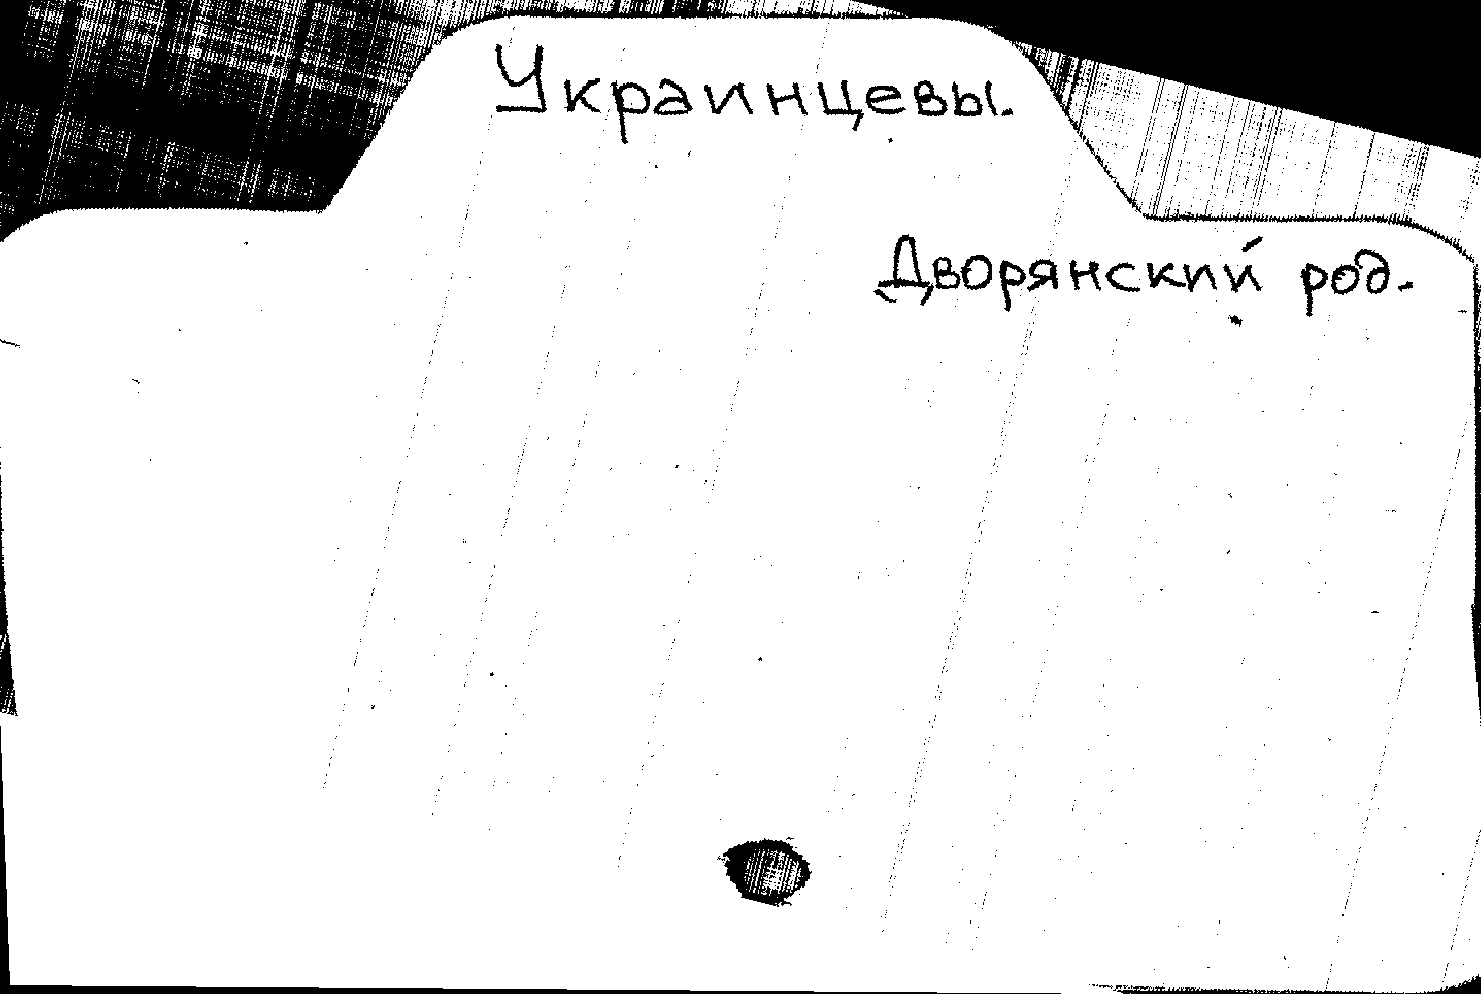 Украинцевы.
Дворянский род.